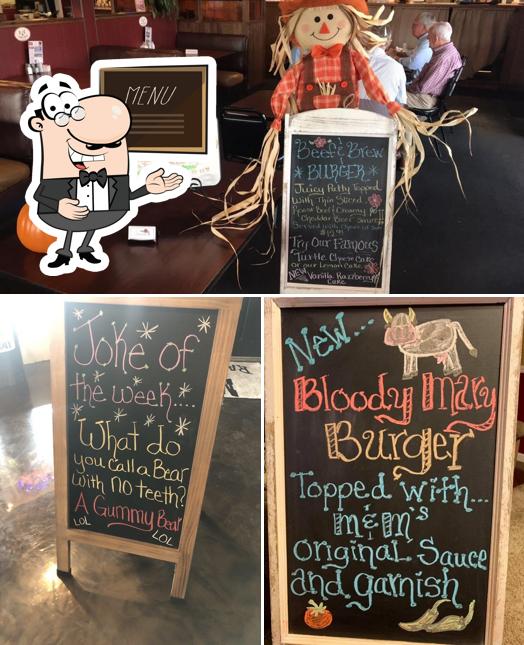 MENU
Beef & Brew
BURGER
Juicy Patty Topped
With Thin Sliced
Roast Beef & Creamy
Cheddar Beer Sauce
Try Our Famous
Turtle Cheesecake
or our Lemon Cake
NEW Vanilla Razzberry
Cake
Joke of
the week....
What do
you call a Bear
with no teeth?
A Gummy Bear
LOL
LOL
New...
Bloody Mary
Burger
Topped with...
m&m's
original Sauce
and garnish